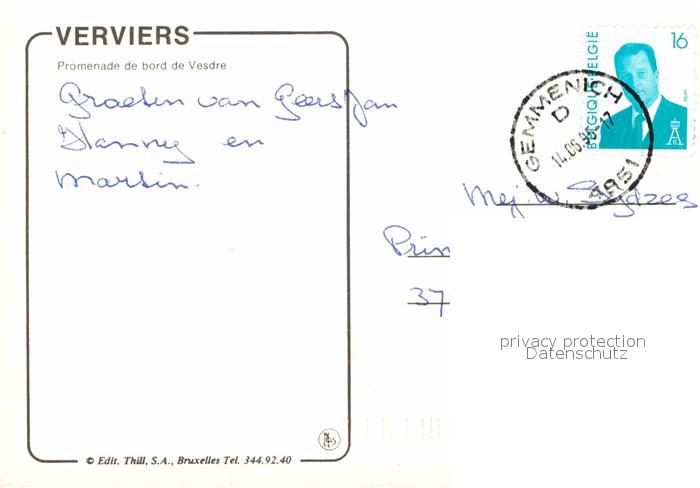 VERVIERS
Promenade de bord de Vesdre
Groeten van Geers Jan
Hanny en
Martin.
16
BELGIQUE-BELGIË
GEMMENICH
D
14.06. 17
4851
Mej. W.
Prin
37
privacy protection
Datenschutz
© Edit. Thill, S.A., Bruxelles Tel. 344.92.40